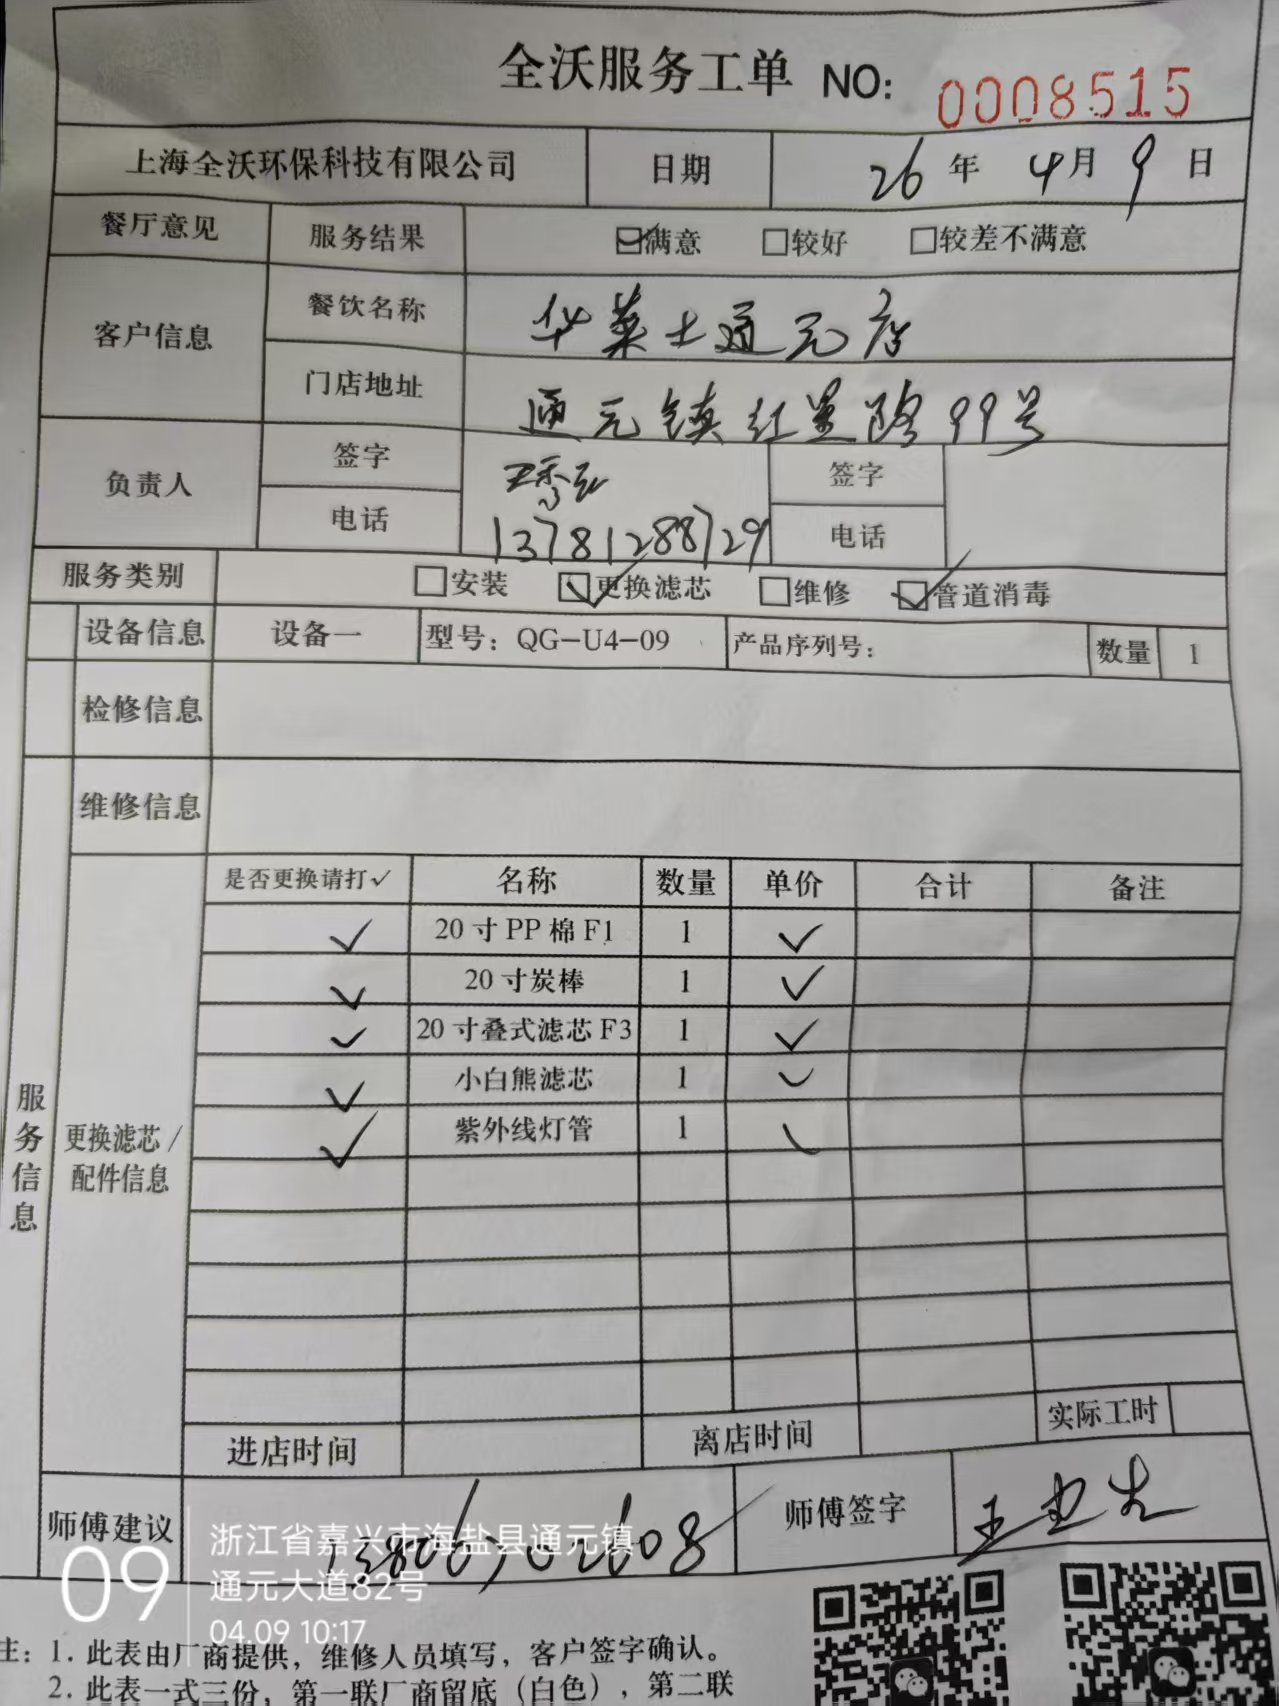 全沃服务工单 NO: 0008515
上海全沃环保科技有限公司 日期 26年 4月 9日
餐厅意见 服务结果 ☑满意 □较好 □较差不满意
客户信息 餐饮名称 华莱士通元店
门店地址 通元镇红星路99号
负责人 签字 签字
电话 13781288729 电话
服务类别 □安装 ☑更换滤芯 □维修 ☑管道消毒
设备信息 设备一 型号：QG-U4-09 产品序列号： 数量 1
检修信息
维修信息
服务信息
更换滤芯/配件信息
是否更换请打✓ 名称 数量 单价 合计 备注
✓ 20寸PP棉F1 1 ✓
✓ 20寸炭棒 1 ✓
✓ 20寸叠式滤芯F3 1 ✓
✓ 小白熊滤芯 1 ✓
✓ 紫外线灯管 1 ✓
进店时间 离店时间 实际工时
师傅建议 师傅签字
09
浙江省嘉兴市海盐县通元镇
通元大道82号
04.09 10:17
注：1. 此表由厂商提供，维修人员填写，客户签字确认。
2. 此表一式三份，第一联厂商留底（白色），第二联